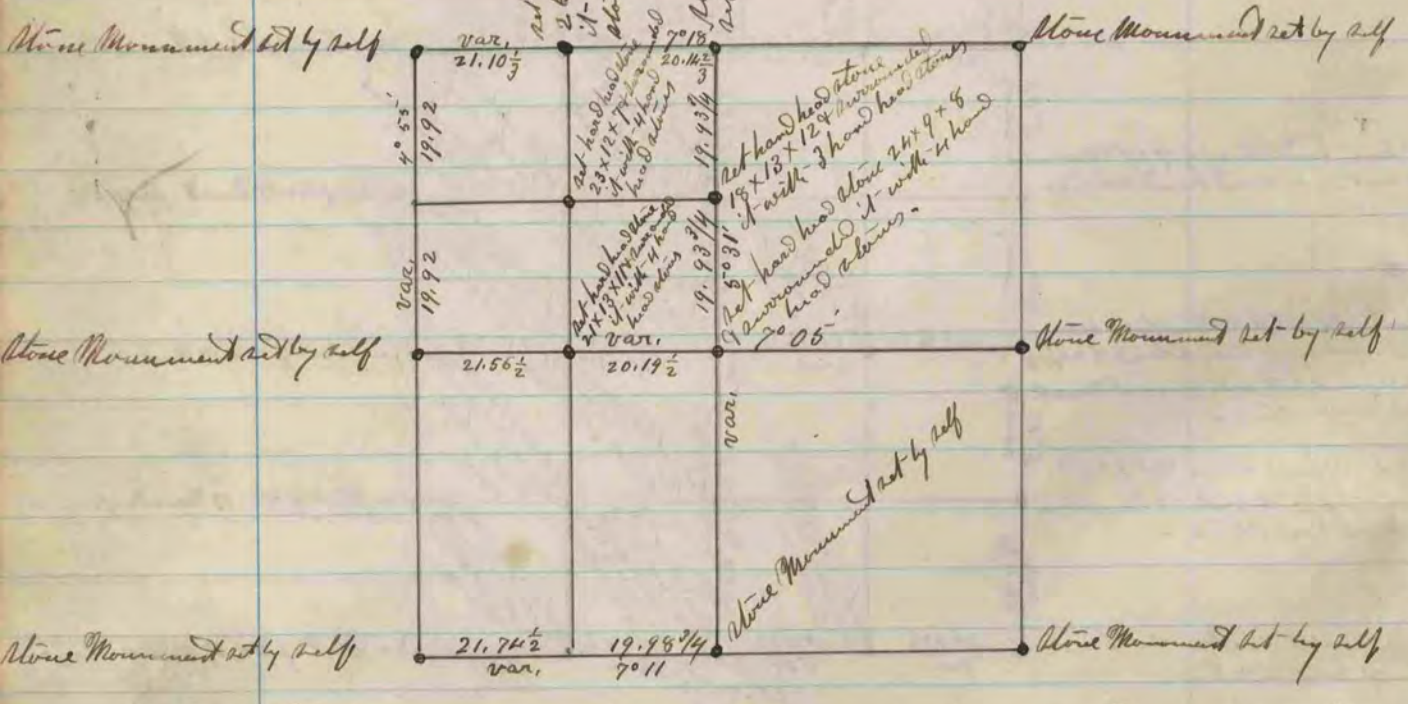 Stone Monument set by self
var.
21.10 1/3
set
it
7° 18
20.14 2/3
Stone Monument set by self
4° 55'
19.92
set hard head stone
23 x 12 x 7 & surrounded
it with 4 hard
head stones
19.93 3/4
set hard head stone
18 x 13 x 12 & surrounded
it with 3 hard head stones
var.
19.92
set hard head stone
21 x 13 x 11 & surrounded
it with 4 hard
head stones
19.93 3/4
5° 31'
set hard head stone 24 x 9 x 8
& surrounded it with 4 hard
head stones.
Stone Monument set by self
21.56 1/2
var.
20.19 1/2
7° 05'
Stone Monument set by self
var.
Stone Monument set by self
Stone Monument set by self
21.74 1/2
19.98 3/4
var.
7° 11
Stone Monument set by self